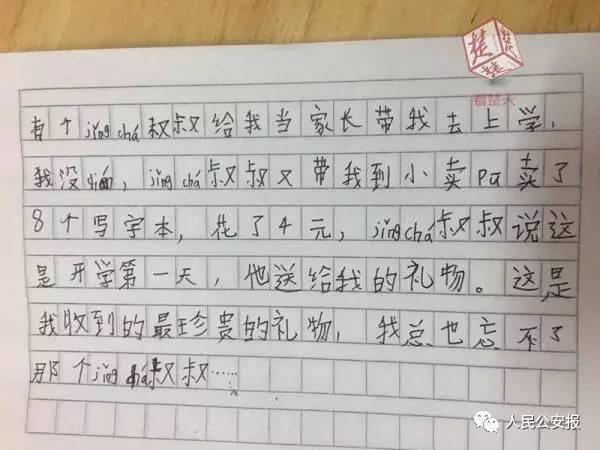 楚
看楚天
有个jǐng chá叔叔给我当家长带我去上学，
我没qián，jǐng chá叔叔又带我到小卖pù卖了
8个写字本，花了4元，jǐng chá叔叔说这
是开学第一天，他送给我的礼物。这是
我收到的最珍贵的礼物，我总也忘不了
那个jǐng chá叔叔……
人民公安报